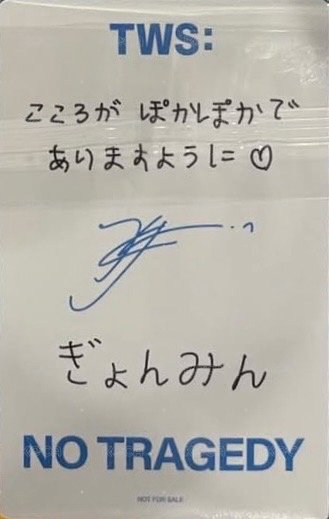 TWS:
こころが ぽかぽかで
ありますように♡
ぎょんみん
NO TRAGEDY
NOT FOR SALE